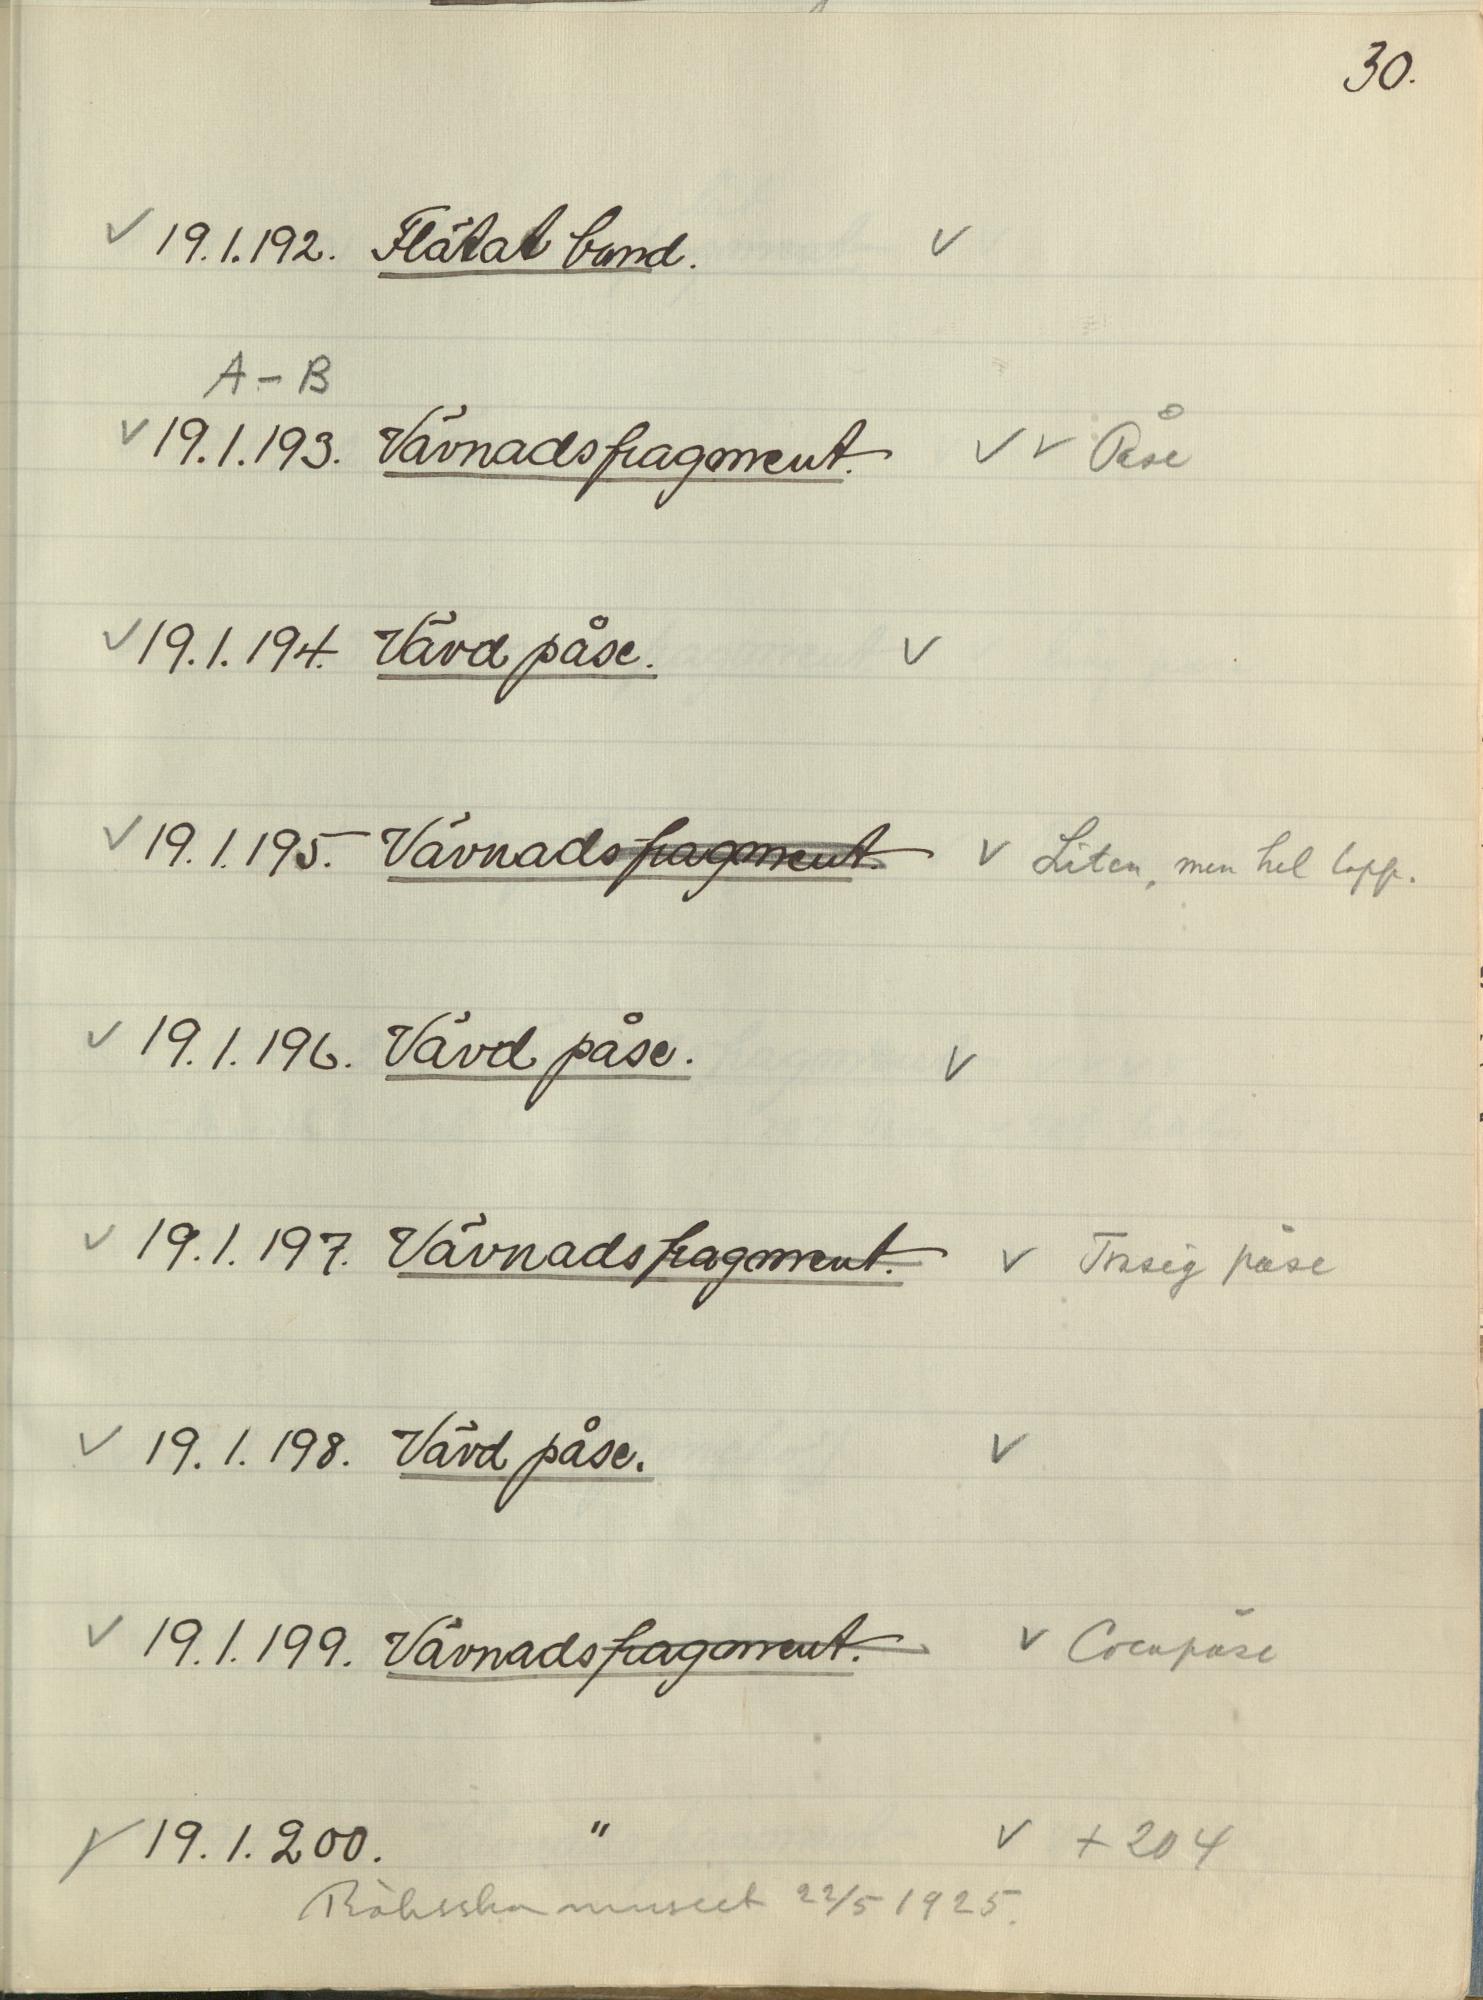 30.
✓ 19.1.192. Flätat band. ✓
A – B
✓ 19.1.193. Vävnadsfragment. ✓ ✓ Påse
✓ 19.1.194. Vävd påse. ✓
✓ 19.1.195. Vävnadsfragment. ✓ Liten, men hel lapp.
✓ 19.1.196. Vävd påse. ✓
✓ 19.1.197. Vävnadsfragment. ✓ Trasig påse
✓ 19.1.198. Vävd påse. ✓
✓ 19.1.199. Vävnadsfragment. ✓ Cocapåse
✓ 19.1.200. " ✓ + 204
Röhsska museet 22/5 1925.